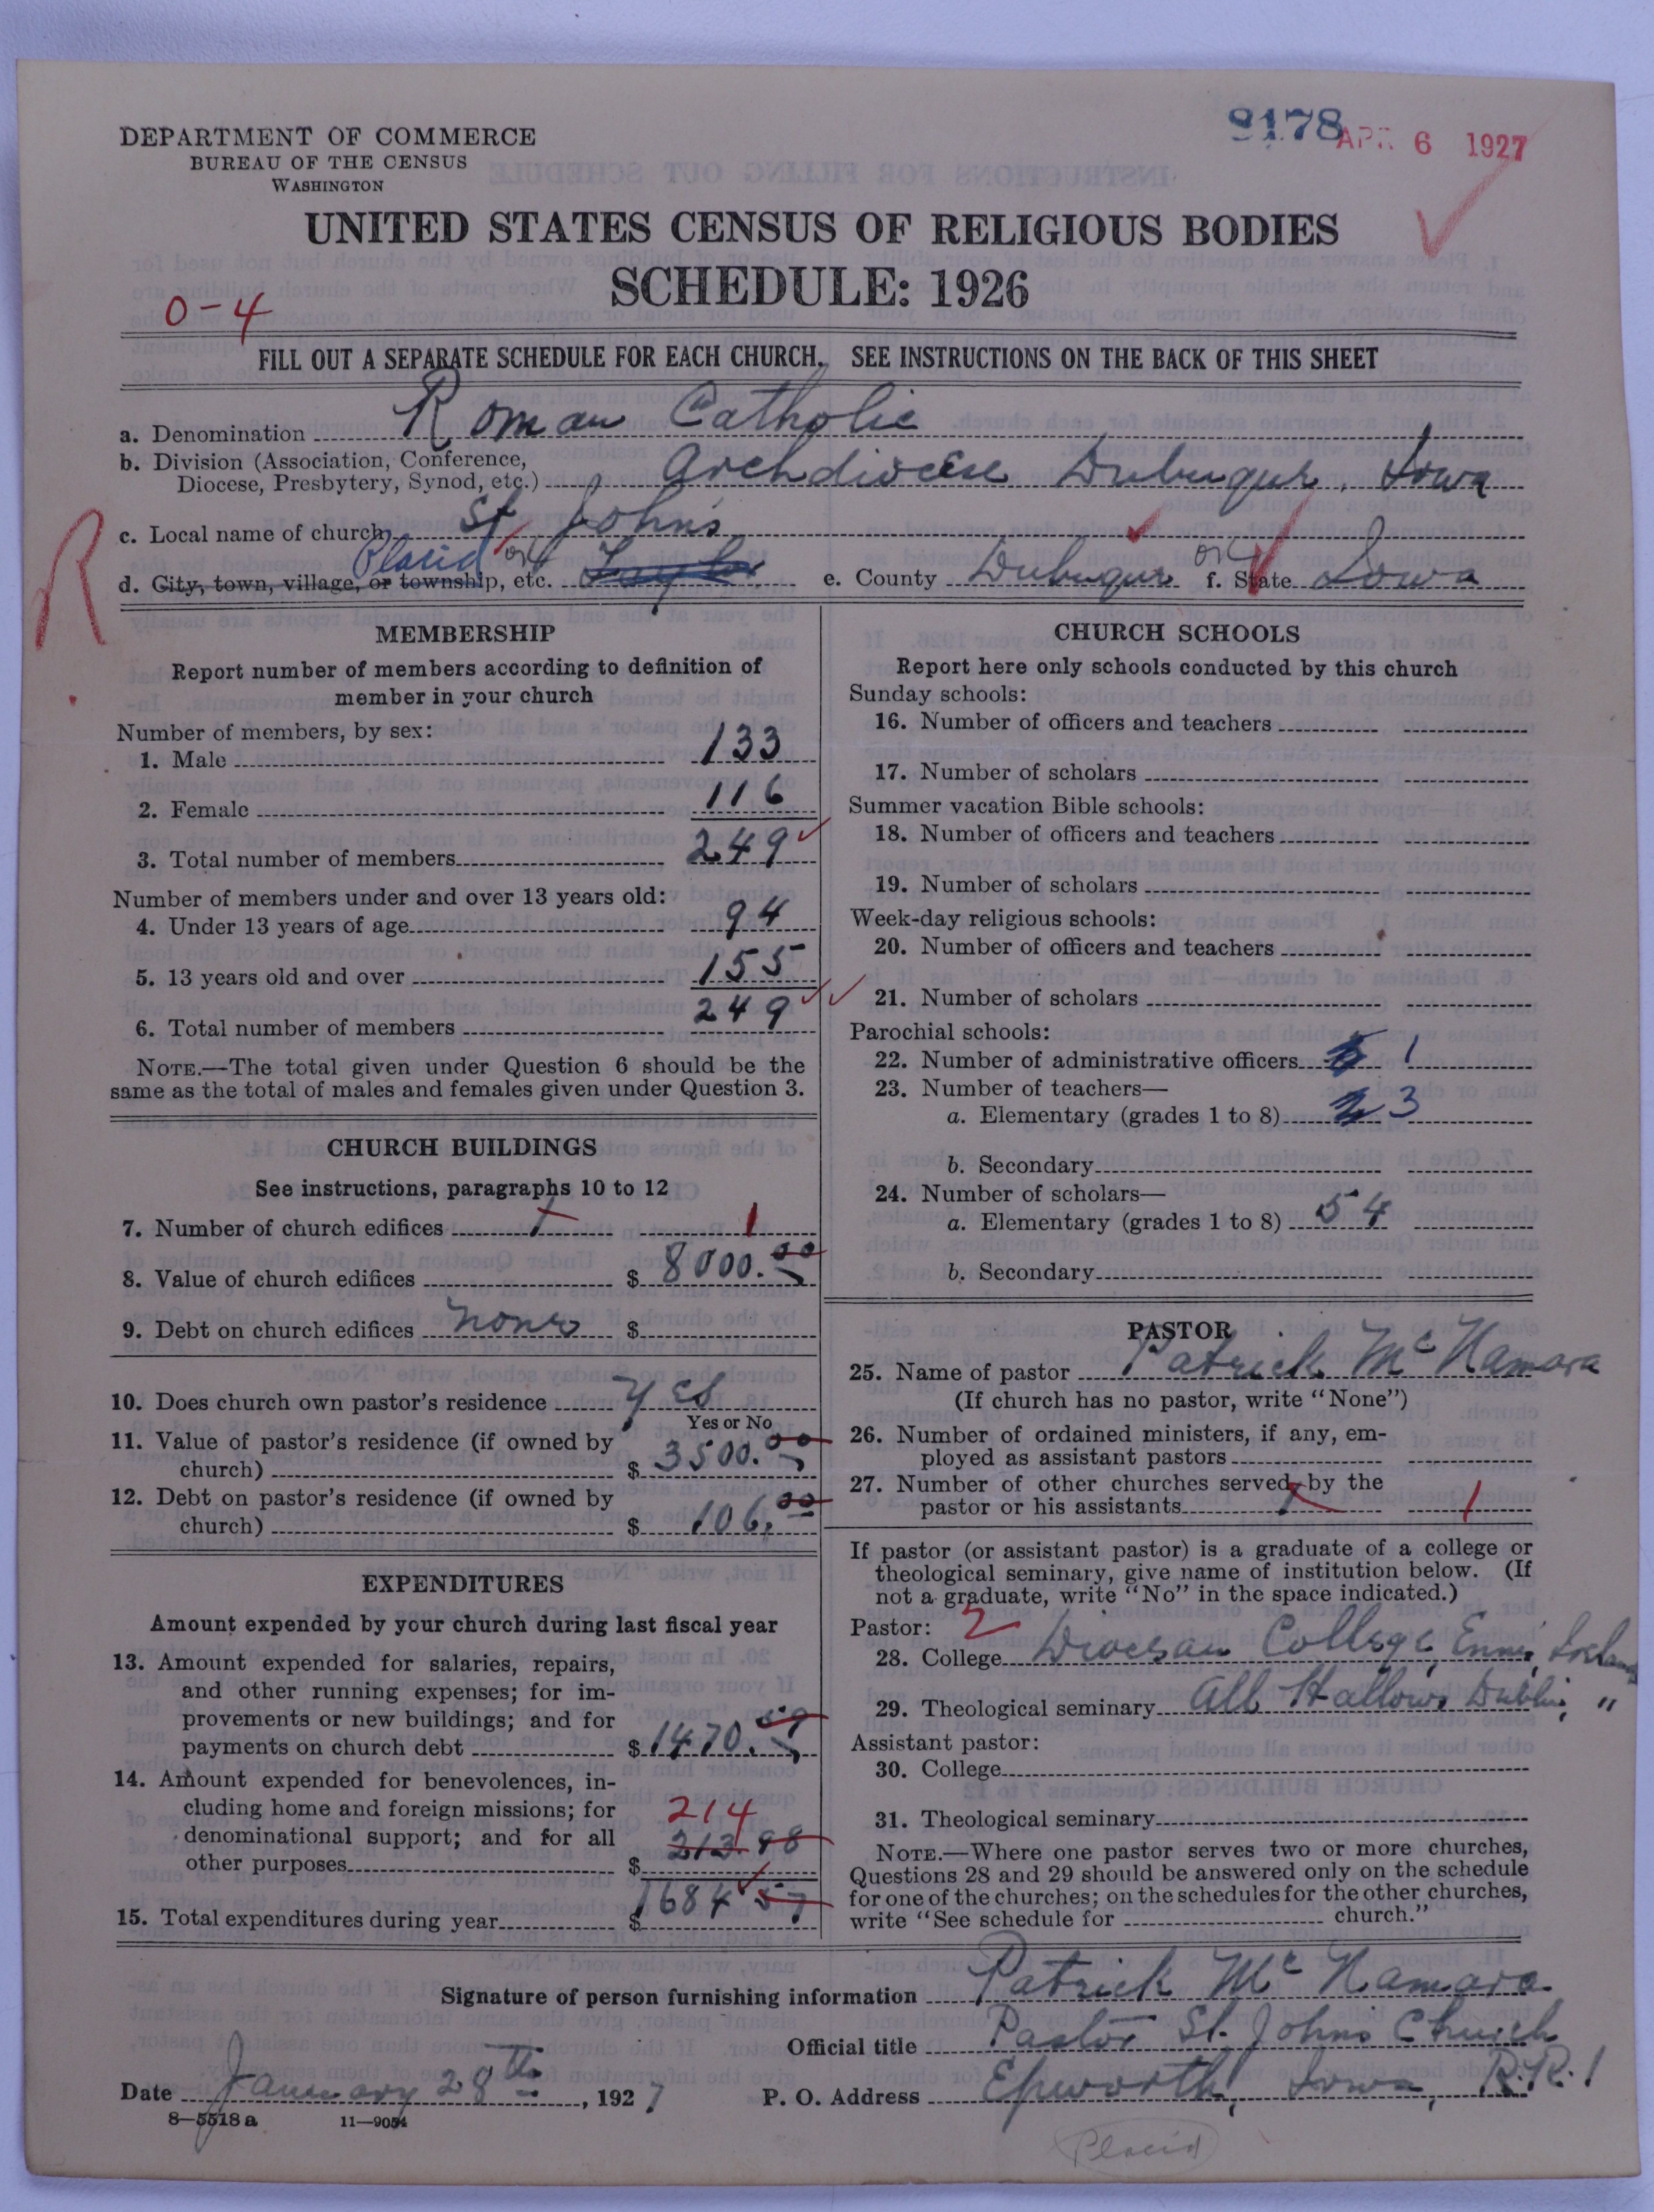 9178 APR 6 1927
DEPARTMENT OF COMMERCE
BUREAU OF THE CENSUS
WASHINGTON
UNITED STATES CENSUS OF RELIGIOUS BODIES
SCHEDULE: 1926
0-4
FILL OUT A SEPARATE SCHEDULE FOR EACH CHURCH. SEE INSTRUCTIONS ON THE BACK OF THIS SHEET
a. Denomination Roman Catholic
b. Division (Association, Conference,
Diocese, Presbytery, Synod, etc.) Archdiocese Dubuque, Iowa
R
c. Local name of church St John's
d. City, town, village, or township, etc. Placid OK Taylor e. County Dubuque OK f. State Iowa
MEMBERSHIP
Report number of members according to definition of
member in your church
Number of members, by sex:
1. Male 133
2. Female 116
3. Total number of members 249
Number of members under and over 13 years old:
4. Under 13 years of age 94
5. 13 years old and over 155
6. Total number of members 249
NOTE.—The total given under Question 6 should be the
same as the total of males and females given under Question 3.
CHURCH BUILDINGS
See instructions, paragraphs 10 to 12
7. Number of church edifices 1 1
8. Value of church edifices $ 8000.00
9. Debt on church edifices none $
10. Does church own pastor's residence Yes
Yes or No
11. Value of pastor's residence (if owned by
church) $ 3500.00
12. Debt on pastor's residence (if owned by
church) $ 106.00
EXPENDITURES
Amount expended by your church during last fiscal year
13. Amount expended for salaries, repairs,
and other running expenses; for im-
provements or new buildings; and for
payments on church debt $ 1470.59
14. Amount expended for benevolences, in-
cluding home and foreign missions; for 214
denominational support; and for all
other purposes $ 213.98
15. Total expenditures during year $ 1684 57
CHURCH SCHOOLS
Report here only schools conducted by this church
Sunday schools:
16. Number of officers and teachers
17. Number of scholars
Summer vacation Bible schools:
18. Number of officers and teachers
19. Number of scholars
Week-day religious schools:
20. Number of officers and teachers
21. Number of scholars
Parochial schools:
22. Number of administrative officers 1
23. Number of teachers—
a. Elementary (grades 1 to 8) 3
b. Secondary
24. Number of scholars—
a. Elementary (grades 1 to 8) 54
b. Secondary
PASTOR
25. Name of pastor Patrick McNamara
(If church has no pastor, write "None")
26. Number of ordained ministers, if any, em-
ployed as assistant pastors
27. Number of other churches served by the
pastor or his assistants 1 1
If pastor (or assistant pastor) is a graduate of a college or
theological seminary, give name of institution below. (If
not a graduate, write "No" in the space indicated.)
Pastor: 2
28. College Diocesan College, Ennis, Ireland
29. Theological seminary All Hallows Dublin, "
Assistant pastor:
30. College
31. Theological seminary
NOTE.—Where one pastor serves two or more churches,
Questions 28 and 29 should be answered only on the schedule
for one of the churches; on the schedules for the other churches,
write "See schedule for church."
Signature of person furnishing information Patrick McNamara
Official title Pastor St. Johns Church
Date January 28th, 1927 P. O. Address Epworth, Iowa, R.R.1
8-5518 a 11-9054
Placid